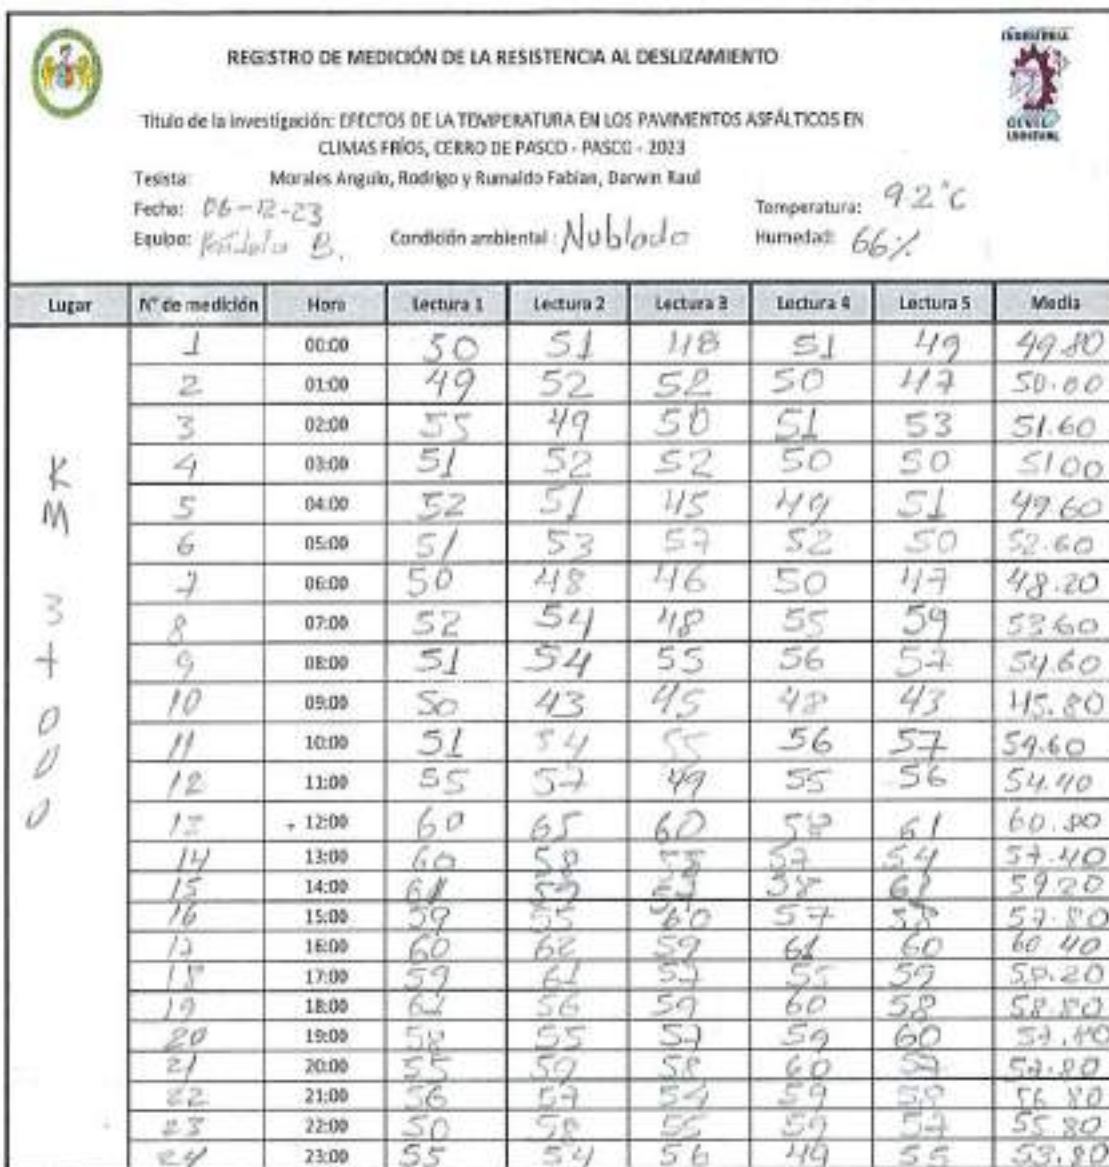 REGISTRO DE MEDICIÓN DE LA RESISTENCIA AL DESLIZAMIENTO
Título de la investigación: EFECTOS DE LA TEMPERATURA EN LOS PAVIMENTOS ASFÁLTICOS EN
CLIMAS FRÍOS, CERRO DE PASCO - PASCO - 2023
Tesista: Morales Angulo, Rodrigo y Rumaldo Fabian, Darwin Raul
Fecha: 06-12-23 Temperatura: 92°C
Equipo: B. Condición ambiental: Nublado Humedad: 66%
Lugar N° de medición Hora Lectura 1 Lectura 2 Lectura 3 Lectura 4 Lectura 5 Media
KM 3+000
1 00:00 50 51 48 51 49 49.80
2 01:00 49 52 52 50 47 50.00
3 02:00 55 49 50 51 53 51.60
4 03:00 51 52 52 50 50 5100
5 04:00 52 51 45 49 51 49.60
6 05:00 51 53 57 52 50 52.60
7 06:00 50 48 46 50 47 48.20
8 07:00 52 54 48 55 59 53.60
9 08:00 51 54 55 56 57 54.60
10 09:00 50 43 45 48 43 45.80
11 10:00 51 54 55 56 57 54.60
12 11:00 55 57 49 55 56 54.40
13 12:00 60 65 60 58 61 60.80
14 13:00 60 58 58 57 54 57.40
15 14:00 61 58 61 5920
16 15:00 59 55 60 57 58 57.80
17 16:00 60 62 59 61 60 60 40
18 17:00 59 61 57 55 59 58.20
19 18:00 61 56 59 60 58 58.80
20 19:00 58 55 57 59 60 57.80
21 20:00 55 59 58 60 57 57.80
22 21:00 56 57 54 59 58 56.80
23 22:00 50 58 55 59 57 55.80
24 23:00 55 54 56 49 55 53.80